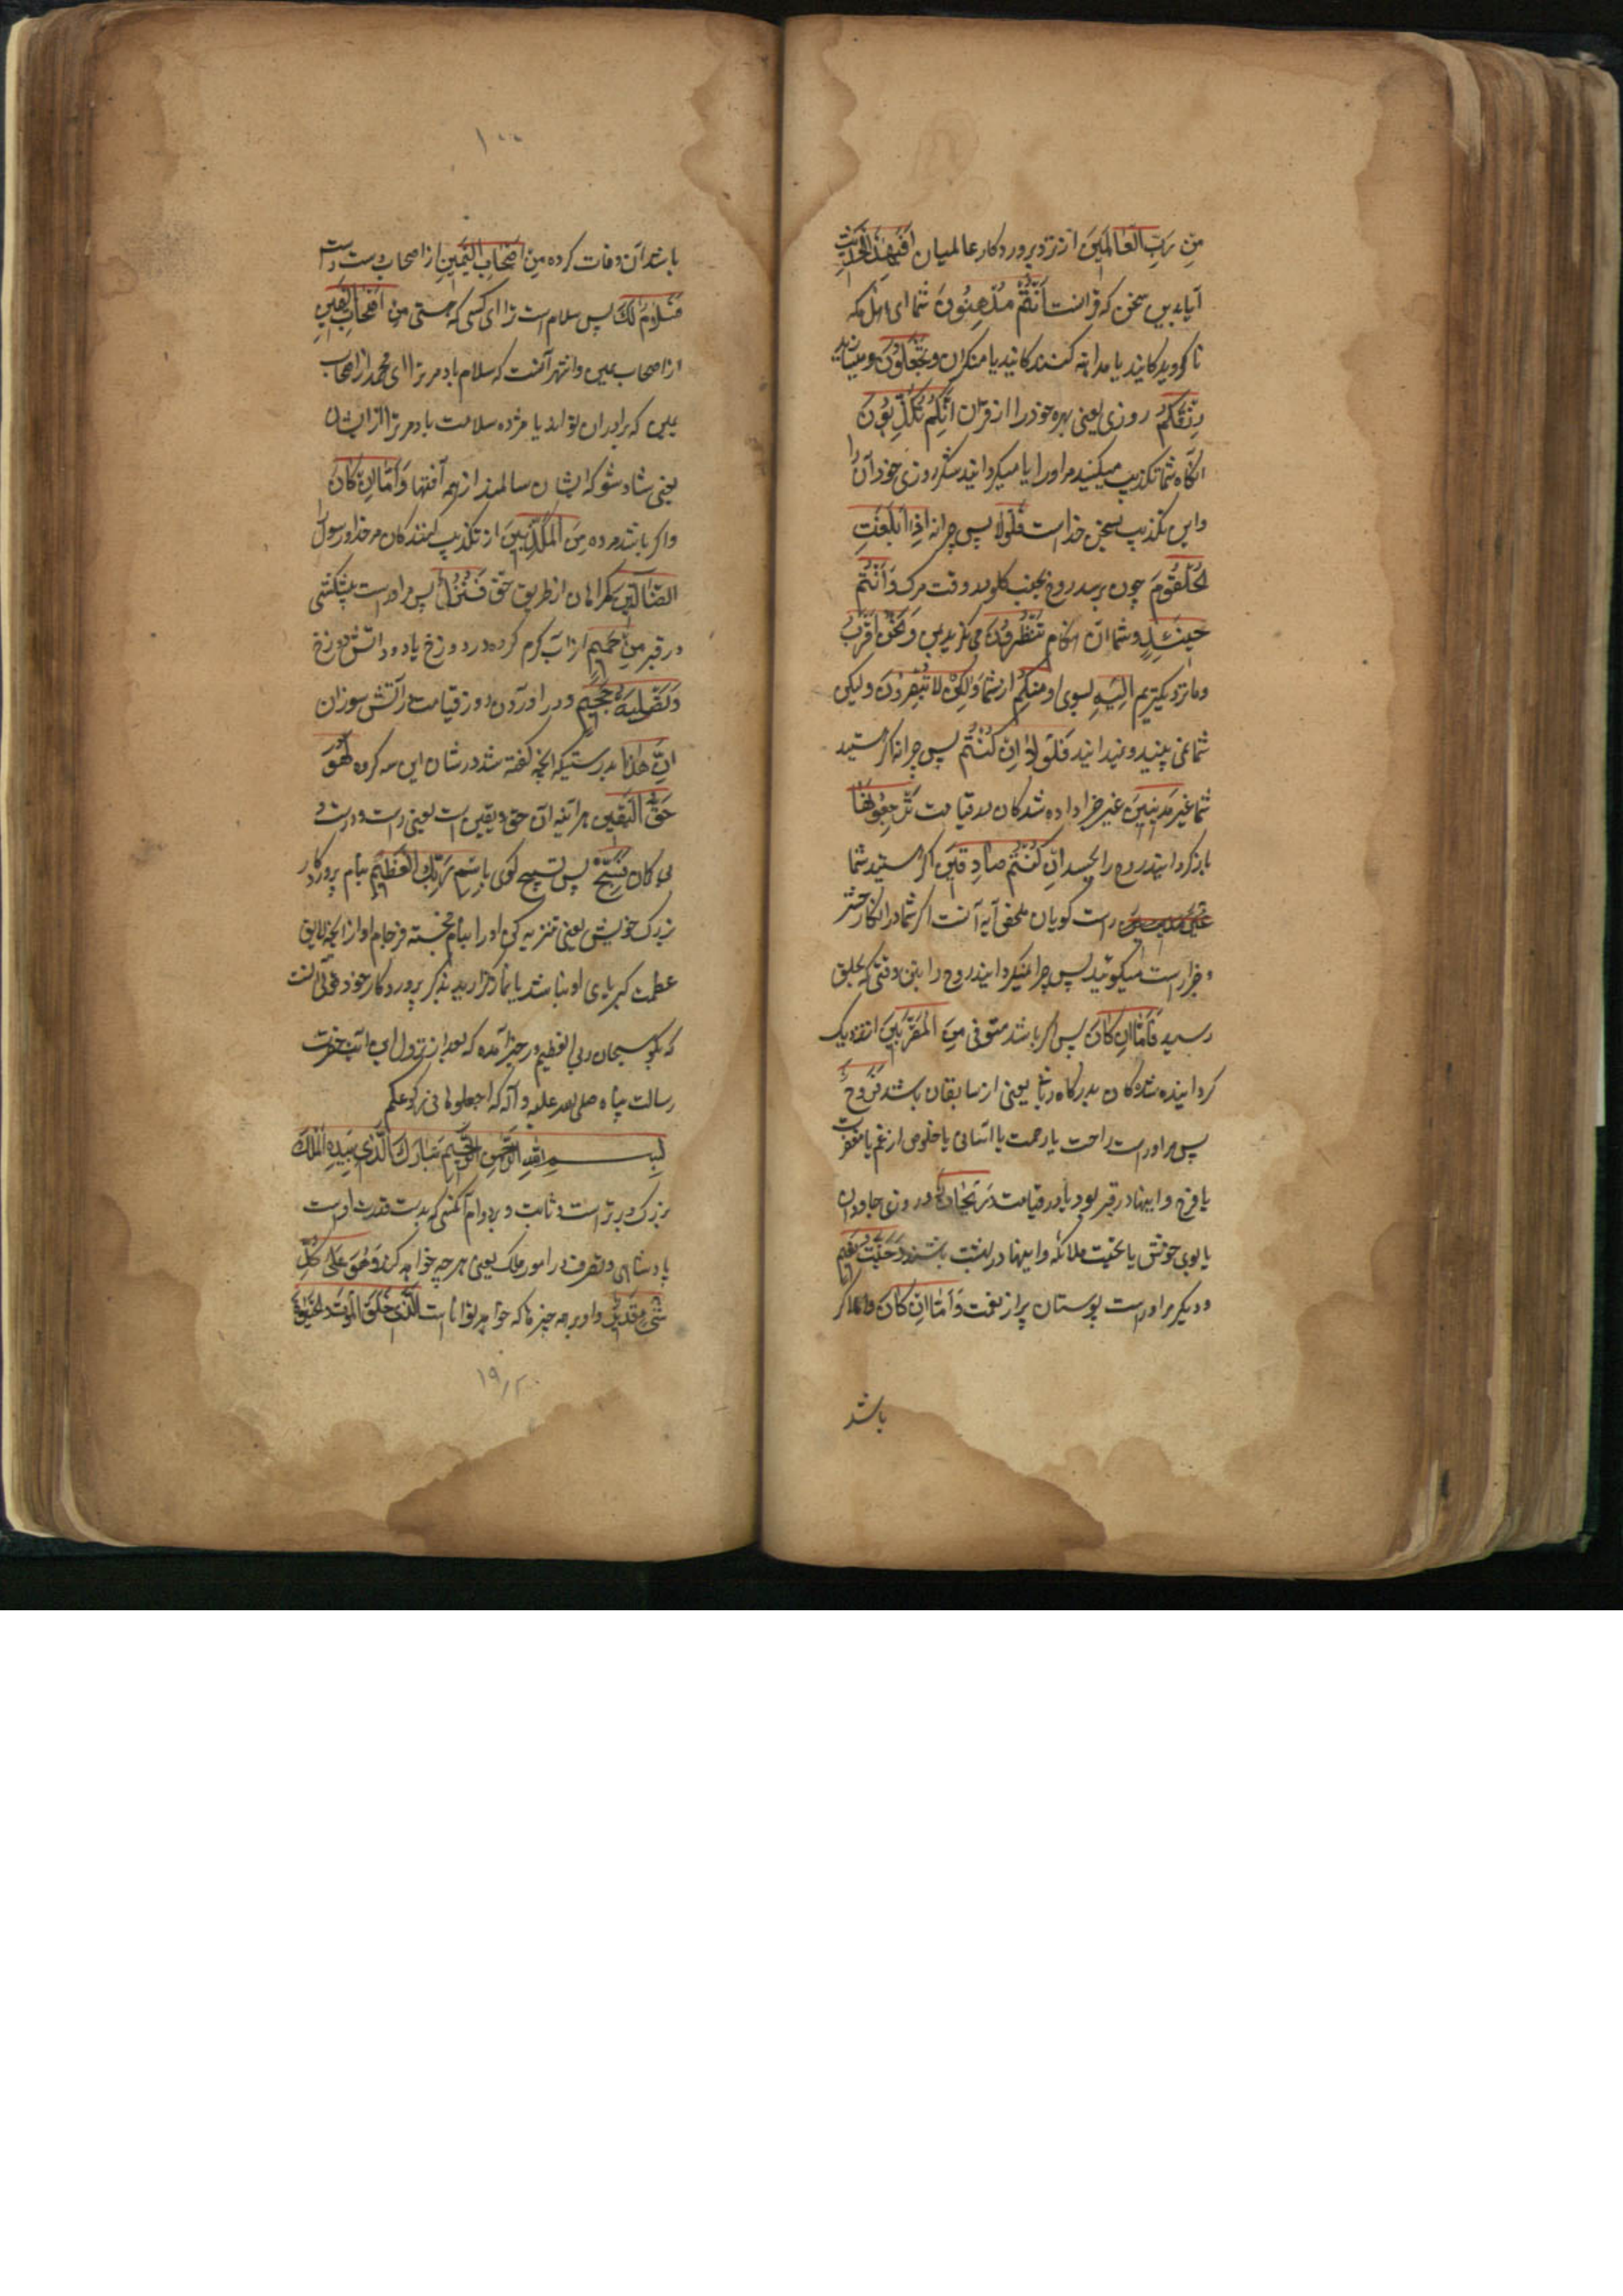 مِن رَبِّ العَالَمِينَ از نزد پروردکار عالمیان اَفَبِهٰذَا الحَدِیثِ
آیا بدین سخن که قرانست اَنتُم مُدهِنُونَ شما ای اهل مکه
ناکرویدکانید یا مداهنه کنندکانید با منکران وَتَجعَلُونَ و میسازید
رِزقَکُم روزی یعنی بهره خود را از قران اَنَّکُم تُکَذِّبُونَ
انکاه شما تکذیب میکنید مر اورا یا میکردانید شکر روزی خود آن را
و این تکذیب سخن خداست فَلَولا پس چرا نه اِذَا بَلَغَتِ
الحُلقُومَ چون برسد روح بحلقوم وقت مرک وَاَنتُم
حِینَئِذٍ و شما آن هنکام تَنظُرُونَ می نکرید وَنَحنُ اَقرَبُ
و ما نزدیکتریم اِلَیهِ بسوی او مِنکُم از شما وَلٰکِن لا تُبصِرُونَ و لیکن
شما نمی بینید و نمیدانید فَلَولا اِن کُنتُم پس چرا نه اکر هستید
شما غَیرَ مَدِینِینَ غیر جزا داده شدکان در قیامت تَرجِعُونَهَا
باز کردانید روح را بجسد اِن کُنتُم صَادِقِینَ اکر هستید شما
راست کویان ملخص آیه آنست اکر شما در انکار حشر
و جزا راست میکوئید پس چرا نمیکردانید روح را بتن وقتی که بحلق
رسید فَاَمَّا اِن کَانَ پس اکر باشد متوفی مِنَ المُقَرَّبِینَ از نزدیک
کردانیده شدکان بدرکاه یعنی از سابقان باشد فَرَوحٌ
پس مر اوراست راحت یا رحمت یا آسانی یا خلوص از غم یا مغفرت
یا فرح و اینها در قبر بود یا در قیامت وَرَیحَانٌ و روزی جاودان
یا بوی خوش یا تحیت ملائکه و اینها در بهشت باشند وَجَنَّتُ نَعِیمٍ
و دیکر مر اوراست بوستان پر از نعمت وَاَمَّا اِن کَانَ و اما اکر
باشد
۱۰۰
باشد آن وفات کرده مِن اَصحَابِ الیَمِینِ از اصحاب دست راست
فَسَلَامٌ لَکَ پس سلام است ترا ای کسی که هستی مِن اَصحَابِ الیَمِینِ
از اصحاب یمین و اشهر آنست که سلام باد مر ترا ای محمد از اصحاب
یمین که برادران تواند یا مژده سلامت باد مر ترا از ایشان
یعنی شاد شو که ایشان سالمند از همه آفتها وَاَمَّا اِن کَانَ
و اکر باشد مرده مِنَ المُکَذِّبِینَ از تکذیب کنندکان مر خدا و رسول را
الضَّالِّینَ کمراهان از طریق حق فَنُزُلٌ پس مر اوراست پیشکشی
در قبر مِن حَمِیمٍ از آب کرم کرده در دوزخ یا دود آتش دوزخ
وَتَصلِیَةُ جَحِیمٍ و در اوردن روز قیامت در آتش سوزان
اِنَّ هٰذَا بدرستیکه آنچه کفته شد در شان این سه کروه لَهُوَ
حَقُّ الیَقِینِ هر آینه آن حق و یقین است یعنی راست و درست
بی کمان فَسَبِّح پس تسبیح کوی بِاسمِ رَبِّکَ العَظِیمِ بنام پروردکار
بزرک خویش یعنی تنزیه کن او را بنام خجسته فرجام او از آنچه لایق
عظمت کبریای او نباشد یا نماز کزارید بذکر پروردکار خود و قولی آنست
که بکو سبحان ربی العظیم در خبر آمده که بعد از نزول این آیت حضرت
رسالت پناه صلی الله علیه و آله که اجعلوها فی رکوعکم
بِسمِ اللهِ الرَّحمٰنِ الرَّحِیمِ تَبَارَکَ الَّذِی بِیَدِهِ المُلکُ
بزرک و برتر است و ثابت و بردوام آنکسی که بدست قدرت اوست
پادشاهی و تصرف در امور ملک یعنی هر چه خواهد کند وَهُوَ عَلٰی کُلِّ
شَیءٍ قَدِیرٌ و او بر همه چیزها که خواهد توانا است الَّذِی خَلَقَ المَوتَ وَالحَیٰوةَ